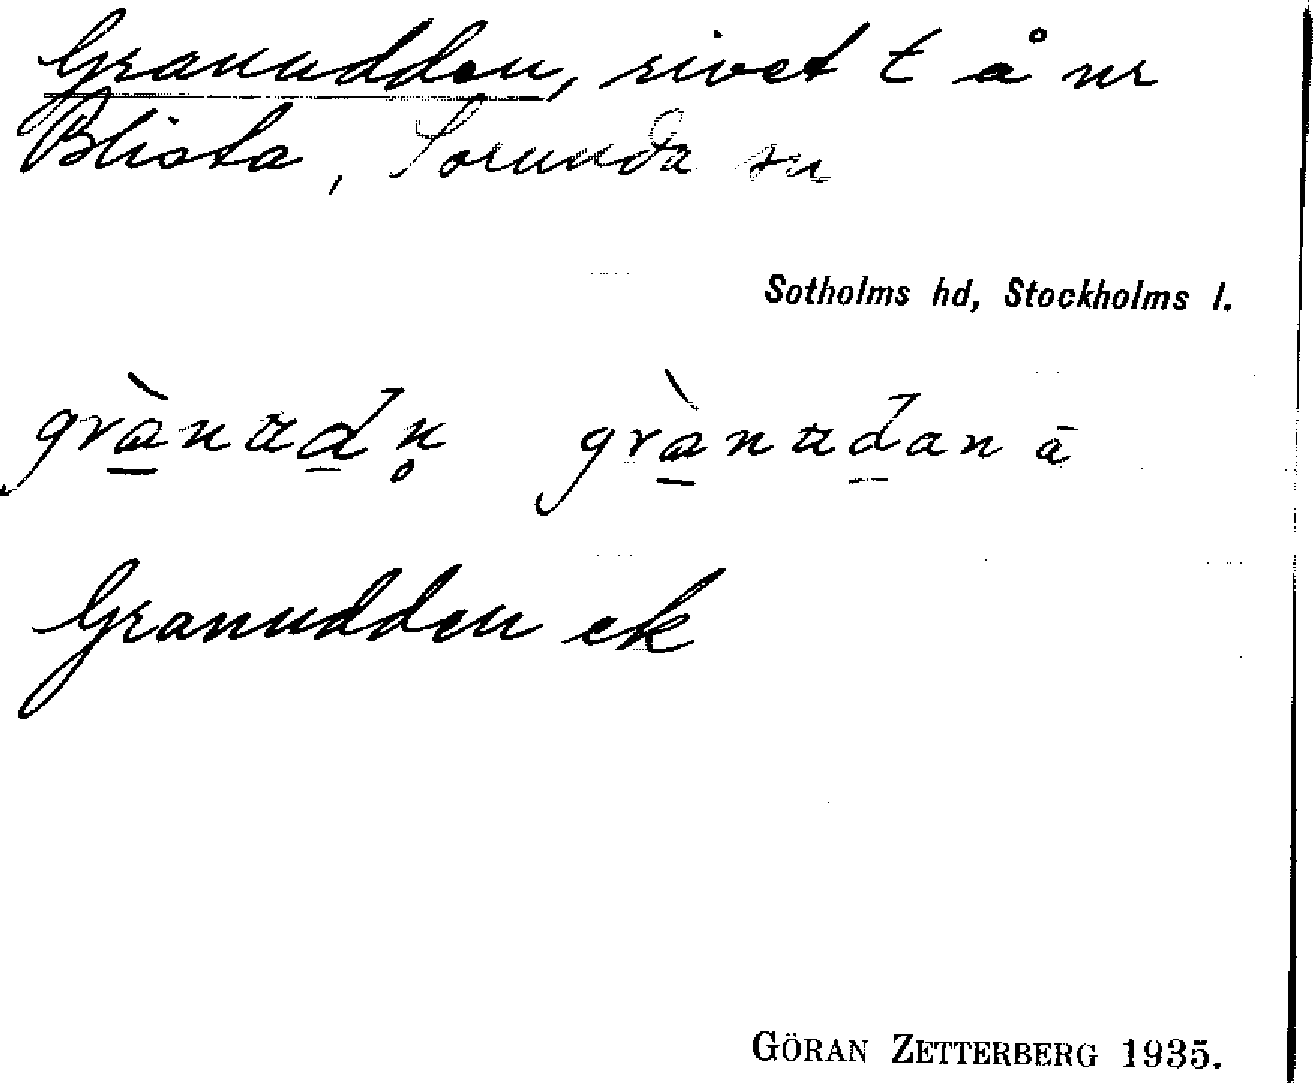 Granudden, rivet t å nr
Blista, Sorunda sn
Sotholms hd, Stockholms l.
Granudden ek
GÖRAN ZETTERBERG 1935.